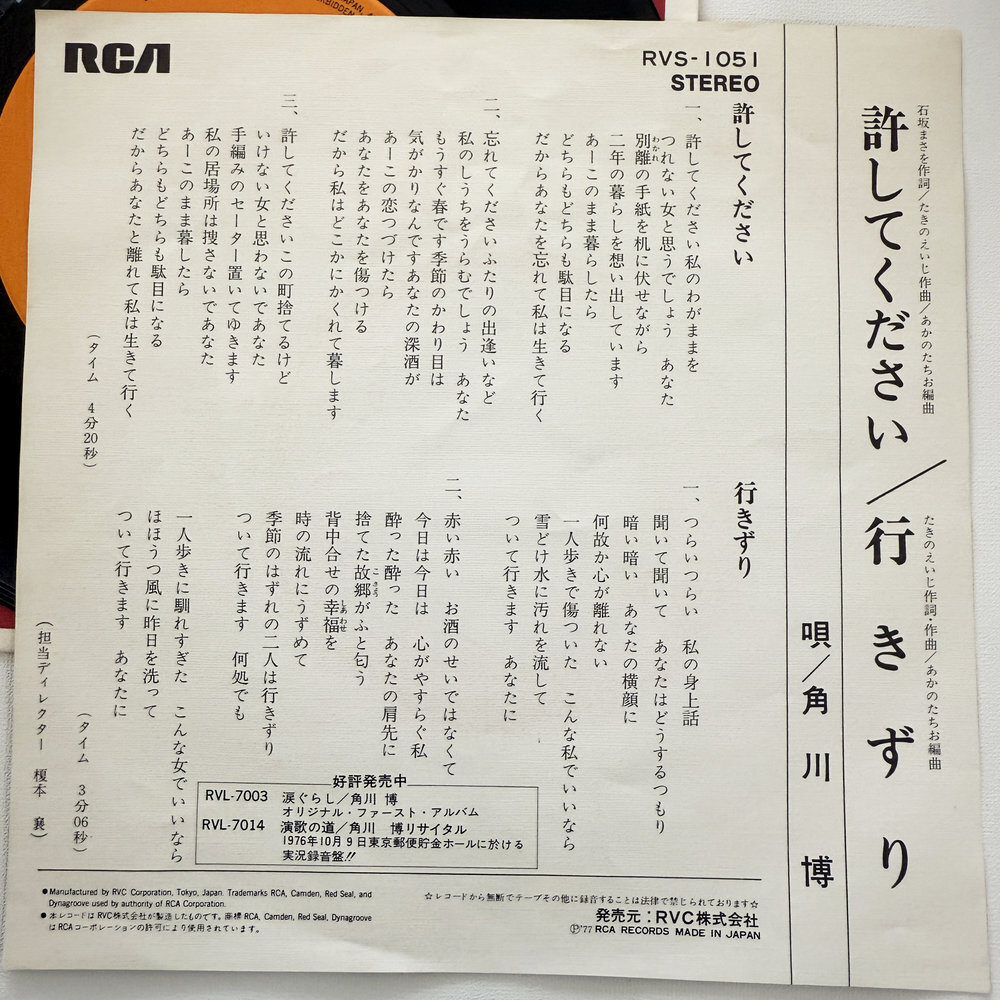 RCA
RVS-1051
STEREO
石坂まさを作詞/たきのえいじ作曲/あかのたちお編曲
たきのえいじ作詞・作曲/あかのたちお編曲
許してください/行きずり
唄/角川 博
許してください
一、許してください私のわがままを
つれない女と思うでしょう あなた
別離の手紙を机に伏せながら
わかれ
二年の暮らしを想い出しています
あーこのまま暮らしたら
どちらもどちらも駄目になる
だからあなたを忘れて私は生きて行く
二、忘れてくださいふたりの出逢いなど
私のしうちをうらむでしょう あなた
もうすぐ春です季節のかわり目は
気がかりなんですあなたの深酒が
あーこの恋つづけたら
あなたをあなたを傷つける
だから私はどこかにかくれて暮します
三、許してくださいこの町捨てるけど
いけない女と思わないであなた
手編みのセーター置いてゆきます
私の居場所は捜さないであなた
あーこのまま暮したら
どちらもどちらも駄目になる
だからあなたと離れて私は生きて行く
(タイム 4分20秒)
行きずり
一、つらいつらい 私の身上話
聞いて聞いて あなたはどうするつもり
暗い暗い あなたの横顔に
何故か心が離れない
一人歩きで傷ついた こんな私でいいなら
雪どけ水に汚れを流して
ついて行きます あなたに
二、赤い赤い お酒のせいではなくて
今日は今日は 心がやすらぐ私
酔った酔った あなたの肩先に
捨てた故郷がふと匂う
こきょう
背中合せの幸福を
しあわせ
時の流れにうずめて
季節のはずれの二人は行きずり
ついて行きます 何処でも
一人歩きに馴れすぎた こんな女でいいなら
ほほうつ風に昨日を洗って
ついて行きます あなたに
(タイム 3分06秒)
(担当ディレクター 榎本 襄)
好評発売中
RVL-7003 涙ぐらし/角川 博
オリジナル・ファースト・アルバム
RVL-7014 演歌の道/角川 博リサイタル
1976年10月9日東京郵便貯金ホールに於ける
実況録音盤!!
●Manufactured by RVC Corporation, Tokyo, Japan. Trademarks RCA, Camden, Red Seal, and
Dynagroove used by authority of RCA Corporation.
●本レコードはRVC株式会社が製造したものです。商標RCA, Camden, Red Seal, Dynagroove
はRCAコーポレーションの許可により使用されています。
☆レコードから無断でテープその他に録音することは法律で禁じられております☆
発売元:RVC株式会社
Ⓟ'77 RCA RECORDS MADE IN JAPAN